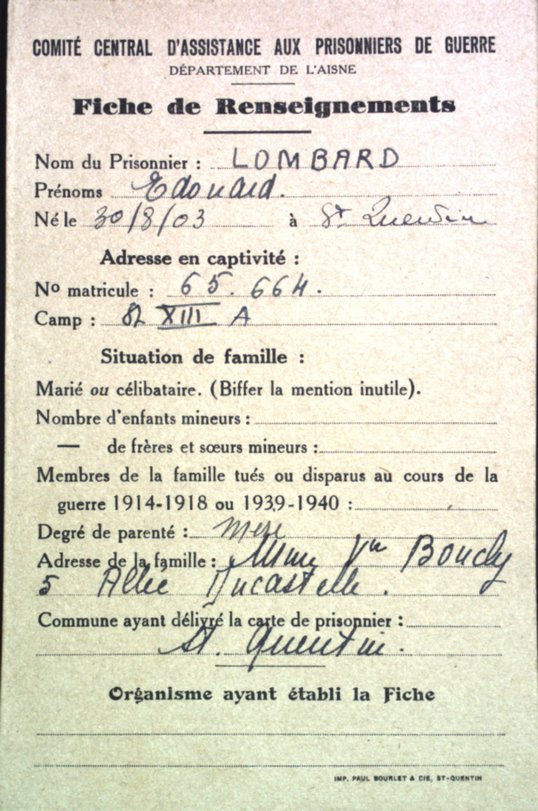 COMITÉ CENTRAL D'ASSISTANCE AUX PRISONNIERS DE GUERRE
DÉPARTEMENT DE L'AISNE
Fiche de Renseignements
Nom du Prisonnier : LOMBARD
Prénoms Edouard.
Né le 30/8/03 à St Quentin
Adresse en captivité :
No matricule : 65.664.
Camp : XIII A
Situation de famille :
Marié ou célibataire. (Biffer la mention inutile).
Nombre d'enfants mineurs :
— de frères et sœurs mineurs :
Membres de la famille tués ou disparus au cours de la
guerre 1914-1918 ou 1939-1940 :
Degré de parenté : mère
Adresse de la famille : Mme Vve Boucly
5 Allée Ducastelle.
Commune ayant délivré la carte de prisonnier :
St. Quentin.
Organisme ayant établi la Fiche
IMP. PAUL BOURLET & CIE, ST-QUENTIN